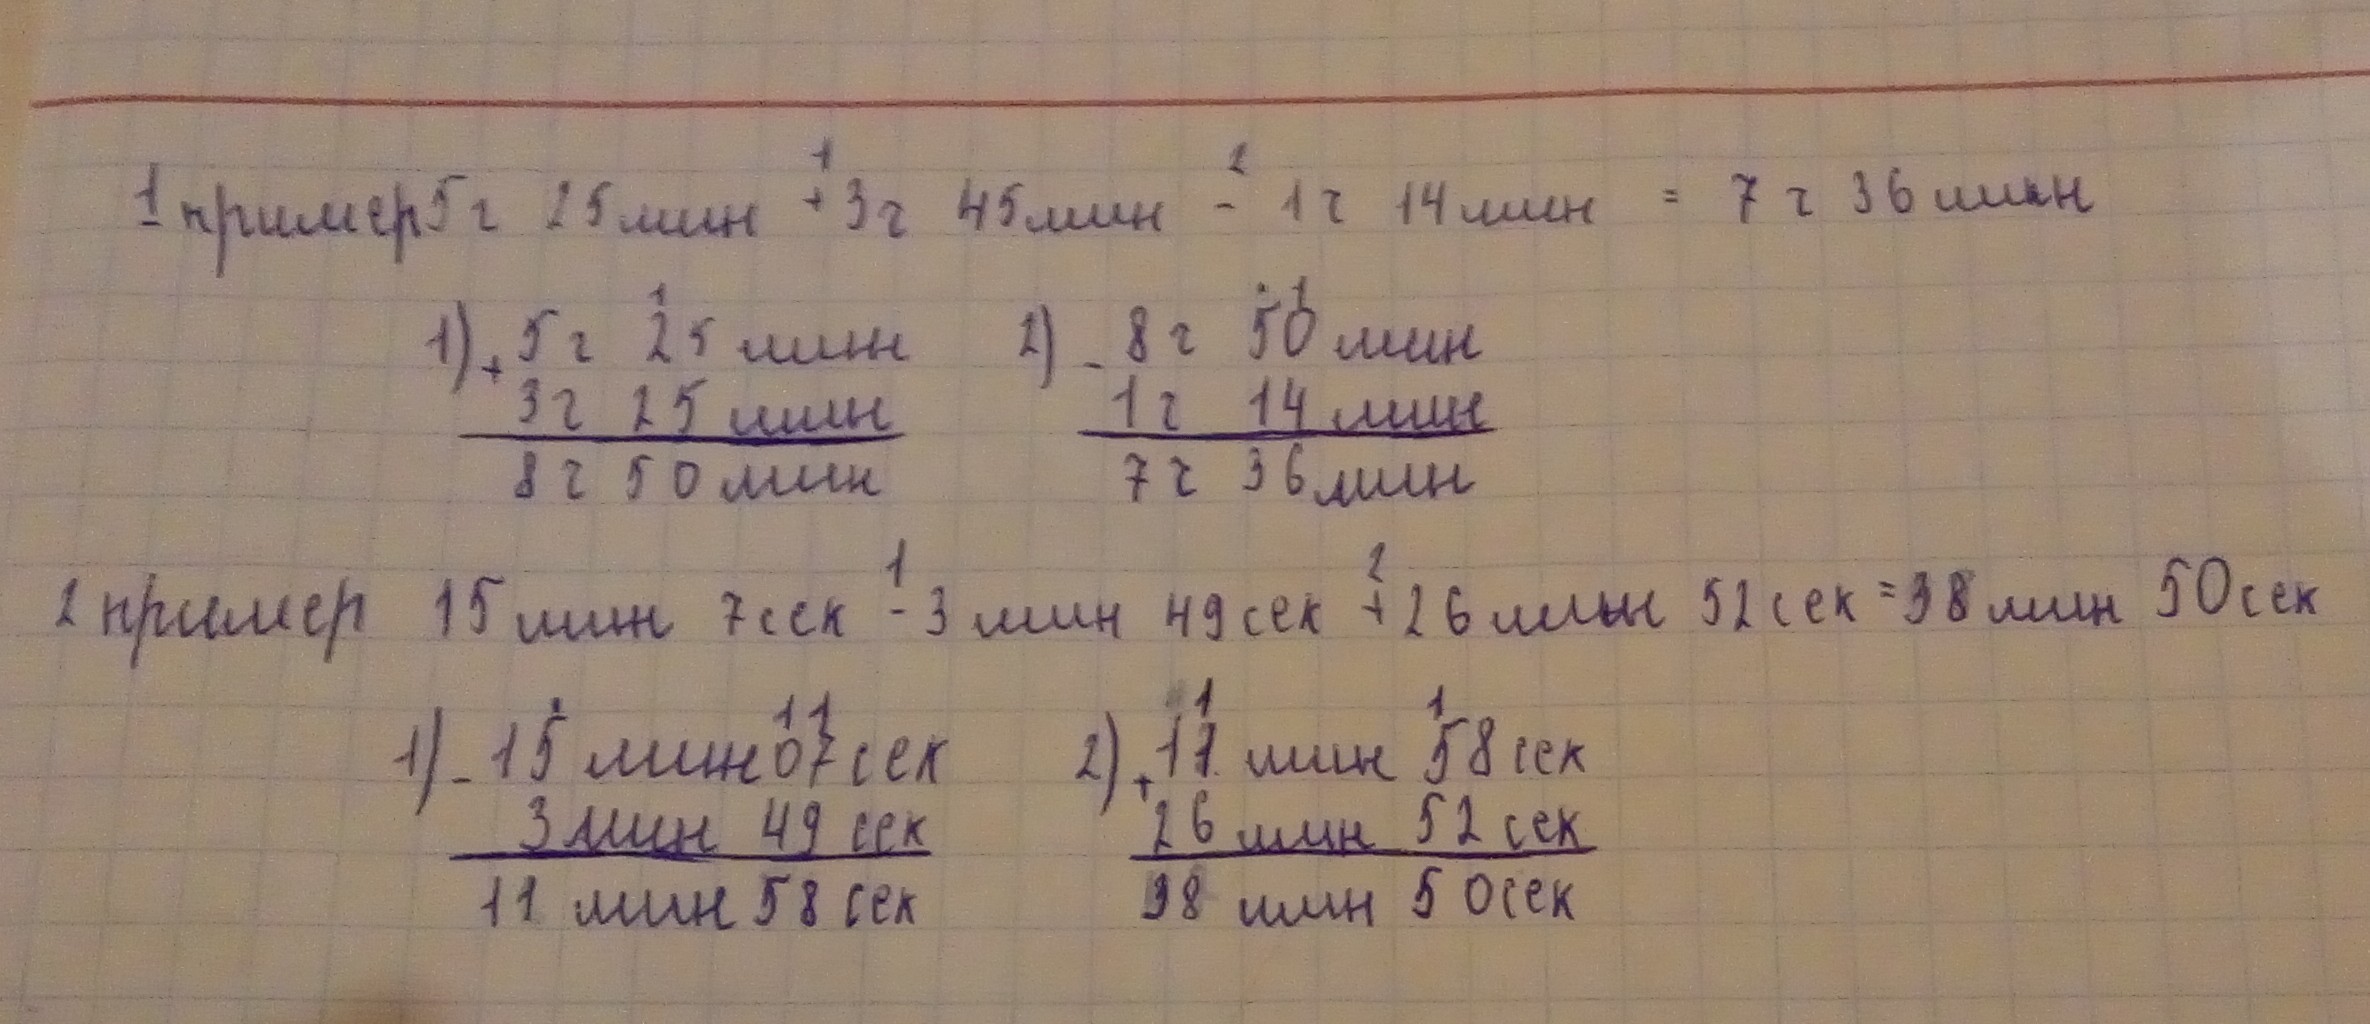 1 пример 5ч 25 мин + 3ч 45 мин - 1ч 14 мин = 7ч 36 мин
1 2
1) + 5ч 25 мин 2) - 8ч 50 мин
3ч 25 мин 1ч 14 мин
8ч 50 мин 7ч 36 мин
1 2
2 пример 15 мин 7 сек - 3 мин 49 сек + 26 мин 52 сек = 38 мин 50 сек
1 1 1 1
1) - 15 мин 07 сек 2) + 11 мин 58 сек
3 мин 49 сек 26 мин 52 сек
11 мин 58 сек 38 мин 50 сек